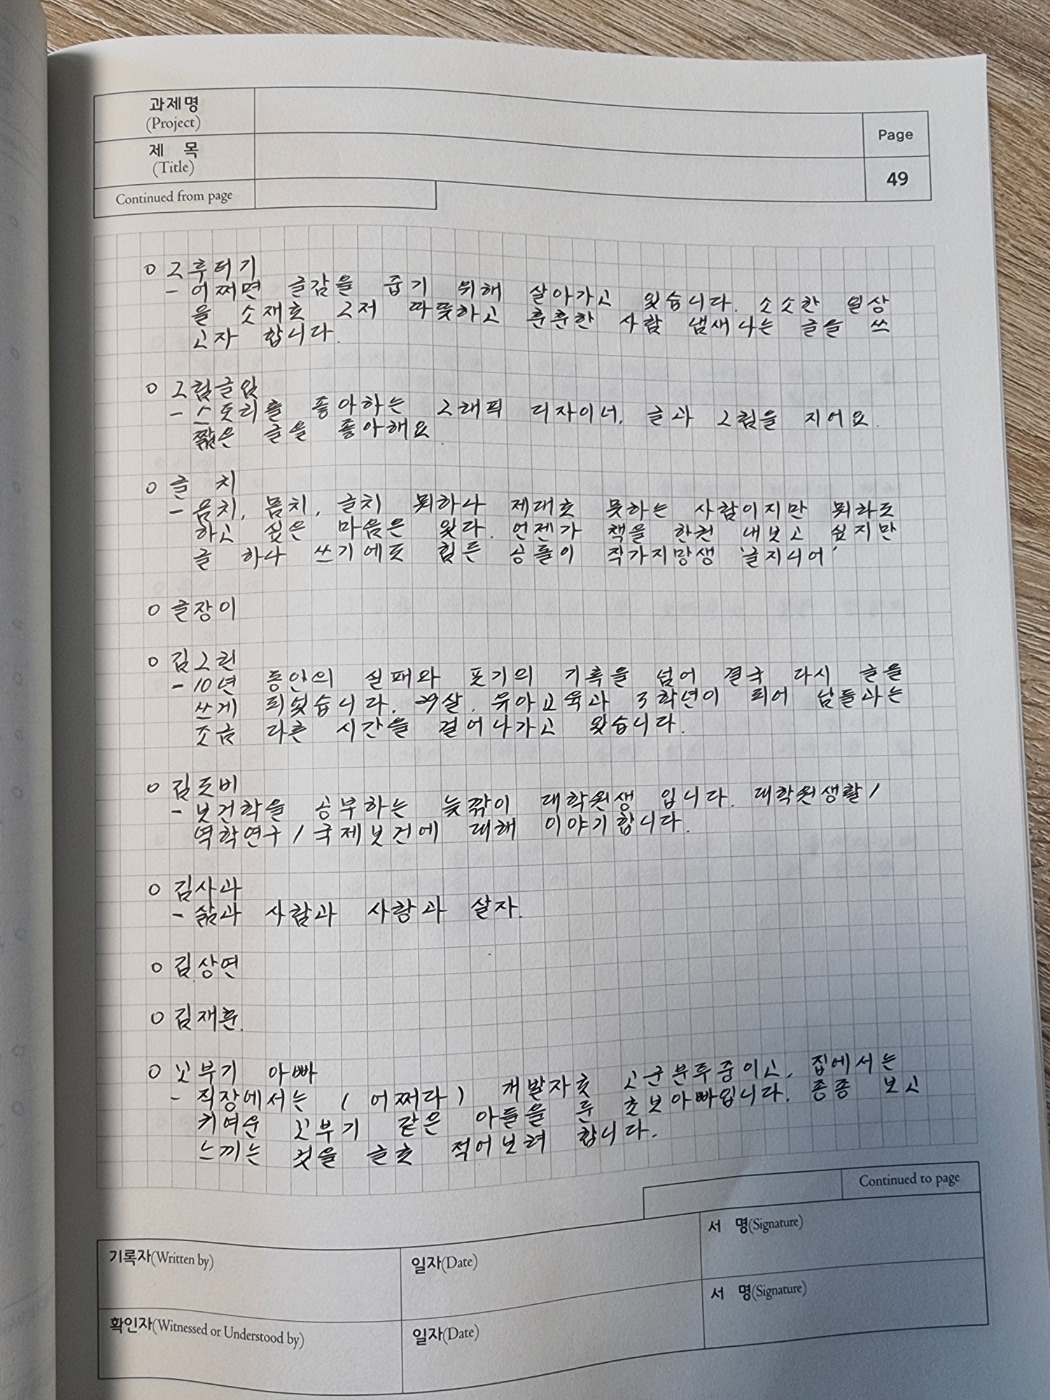 과제명
(Project)
Page
제 목
(Title)
49
Continued from page
○ 그루터기
- 어쩌면 글감을 줍기 위해 살아가고 있습니다. 소소한 일상
을 소재로 그저 따뜻하고 훈훈한 사람 냄새나는 글을 쓰
고자 합니다.
○ 그림글임
- 스토리를 좋아하는 그래픽 디자이너, 글과 그림을 지어요.
짧은 글을 좋아해요.
○ 글 치
- 음치, 몸치, 글치 뭐하나 제대로 못하는 사람이지만 뭐라도
하고 싶은 마음은 있다. 언젠가 책을 한권 내보고 싶지만
글 하나 쓰기에도 힘든 공돌이 작가지망생 '글지니어'
○ 글장이
○ 김그린
- 10년 동안의 실패와 포기의 기록을 넘어 결국 다시 글을
쓰게 되었습니다. 29살. 유아교육과 3학년이 되어 남들과는
조금 다른 시간을 걸어나가고 있습니다.
○ 김도비
- 보건학을 공부하는 늦깎이 대학원생 입니다. 대학원생활/
역학연구/국제보건에 대해 이야기합니다.
○ 김사과
- 삶과 사람과 사랑과 살자.
○ 김상연
○ 김재훈.
○ 꼬부기 아빠
- 직장에서는 (어쩌다) 개발자로 고군분투중이고, 집에서는
귀여운 꼬부기 같은 아들을 둔 초보아빠입니다. 종종 보고
느끼는 것을 글로 적어보려 합니다.
Continued to page
기록자(Written by)
일자(Date)
서 명(Signature)
확인자(Witnessed or Understood by)
일자(Date)
서 명(Signature)